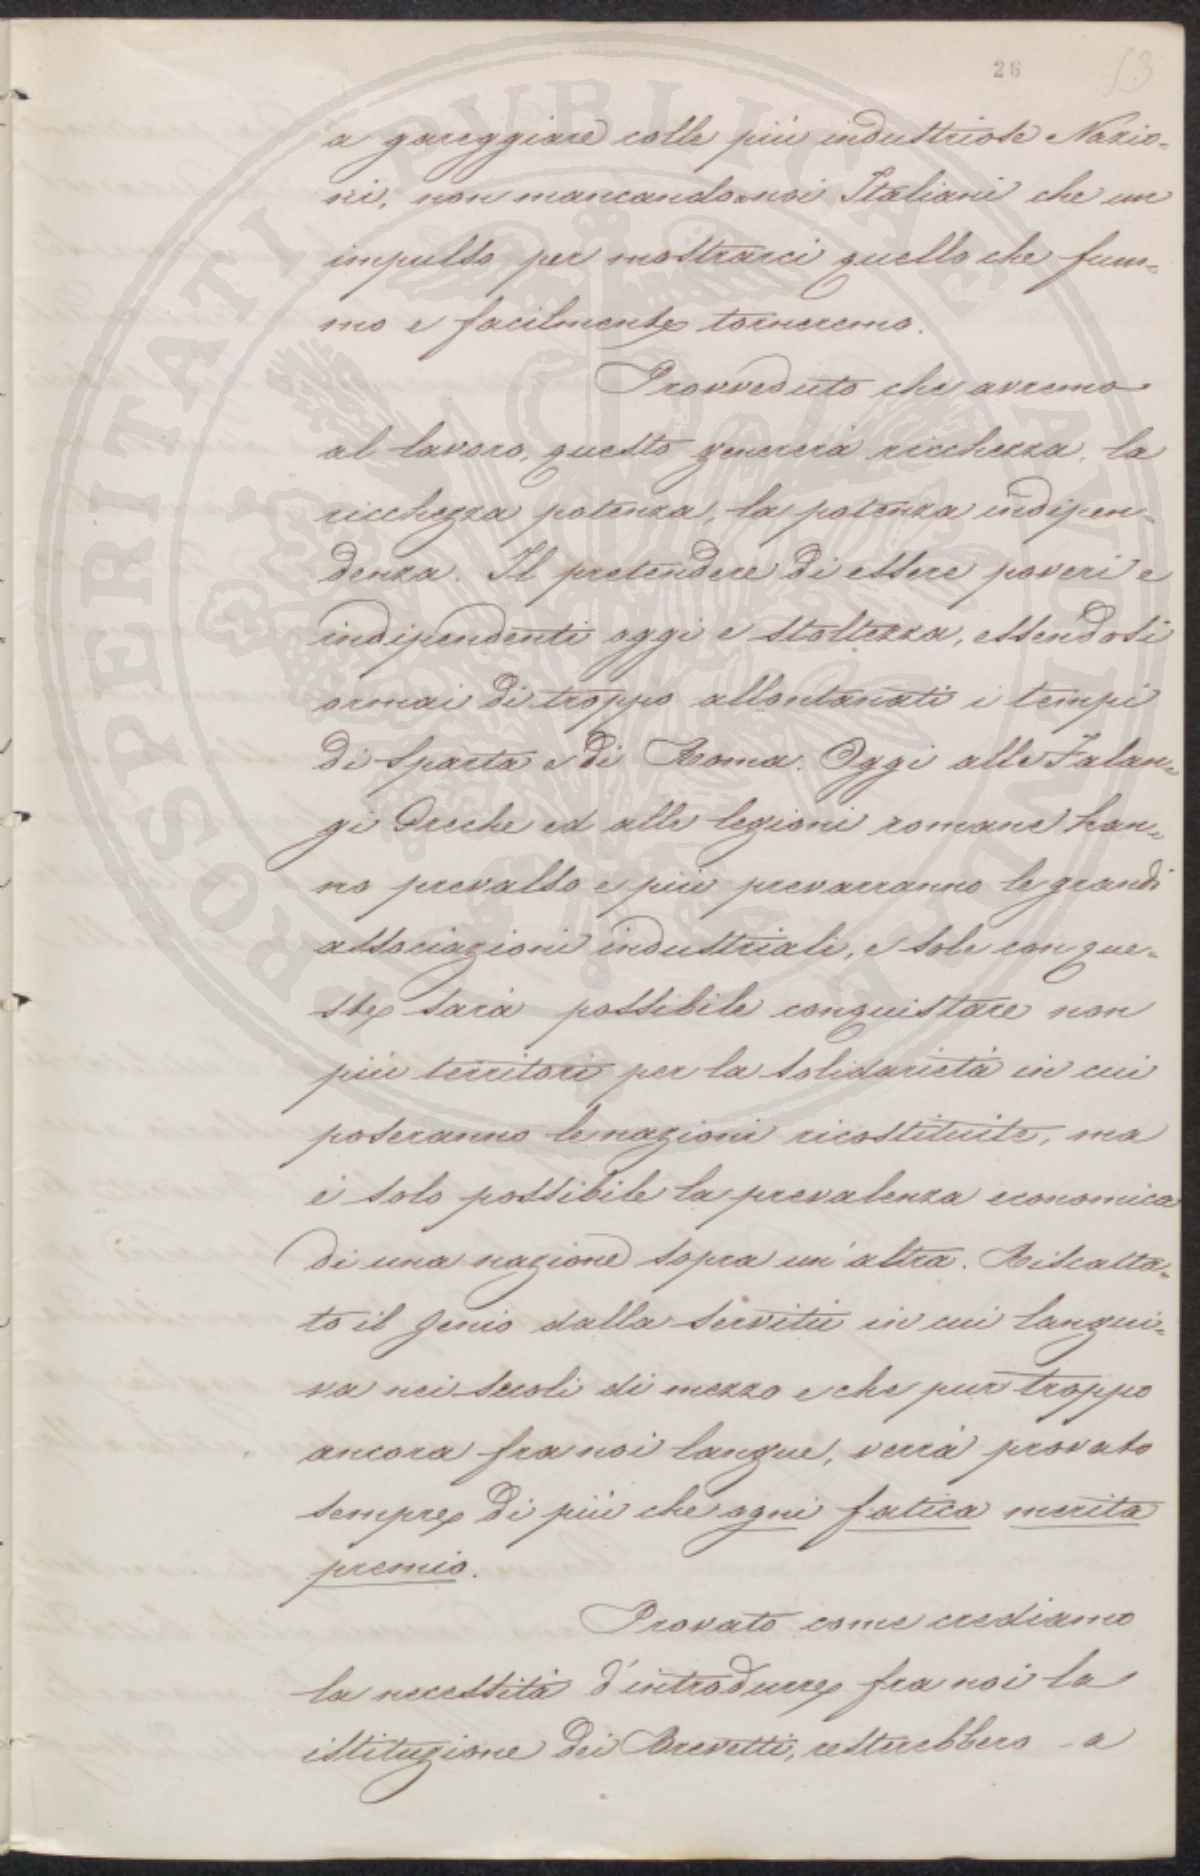 26
53
a gareggiare colle più industriose Nazio-
ni, non mancando a noi Italiani che un
impulso per mostrarci quello che fum-
mo e facilmente torneremo.
Provveduto che avremo
al lavoro, questo genererà ricchezza, la
ricchezza potenza, la potenza indipen-
denza. Il pretendere di essere poveri e
indipendenti oggi è stoltezza, essendosi
ormai di troppo allontanati i tempi
di Sparta e di Roma. Oggi alle Falan-
gi Greche ed alle legioni romane han-
no prevalso e più prevarranno le grandi
associazioni industriali, e sole con que-
ste sarà possibile conquistare non
più territori per la solidarietà in cui
poseranno le nazioni ricostituite, ma
è solo possibile la prevalenza economica
di una nazione sopra un'altra. Riscatta-
to il genio dalla servitù in cui langui-
va nei secoli di mezzo e che pur troppo
ancora fra noi langue, verrà provato
sempre di più che ogni fatica merita
premio.
Provato come crediamo
la necessità d'introdurre fra noi la
istituzione dei Brevetti, resterebbero a
PROSPERITATI PUBLICAE AUGENDAE